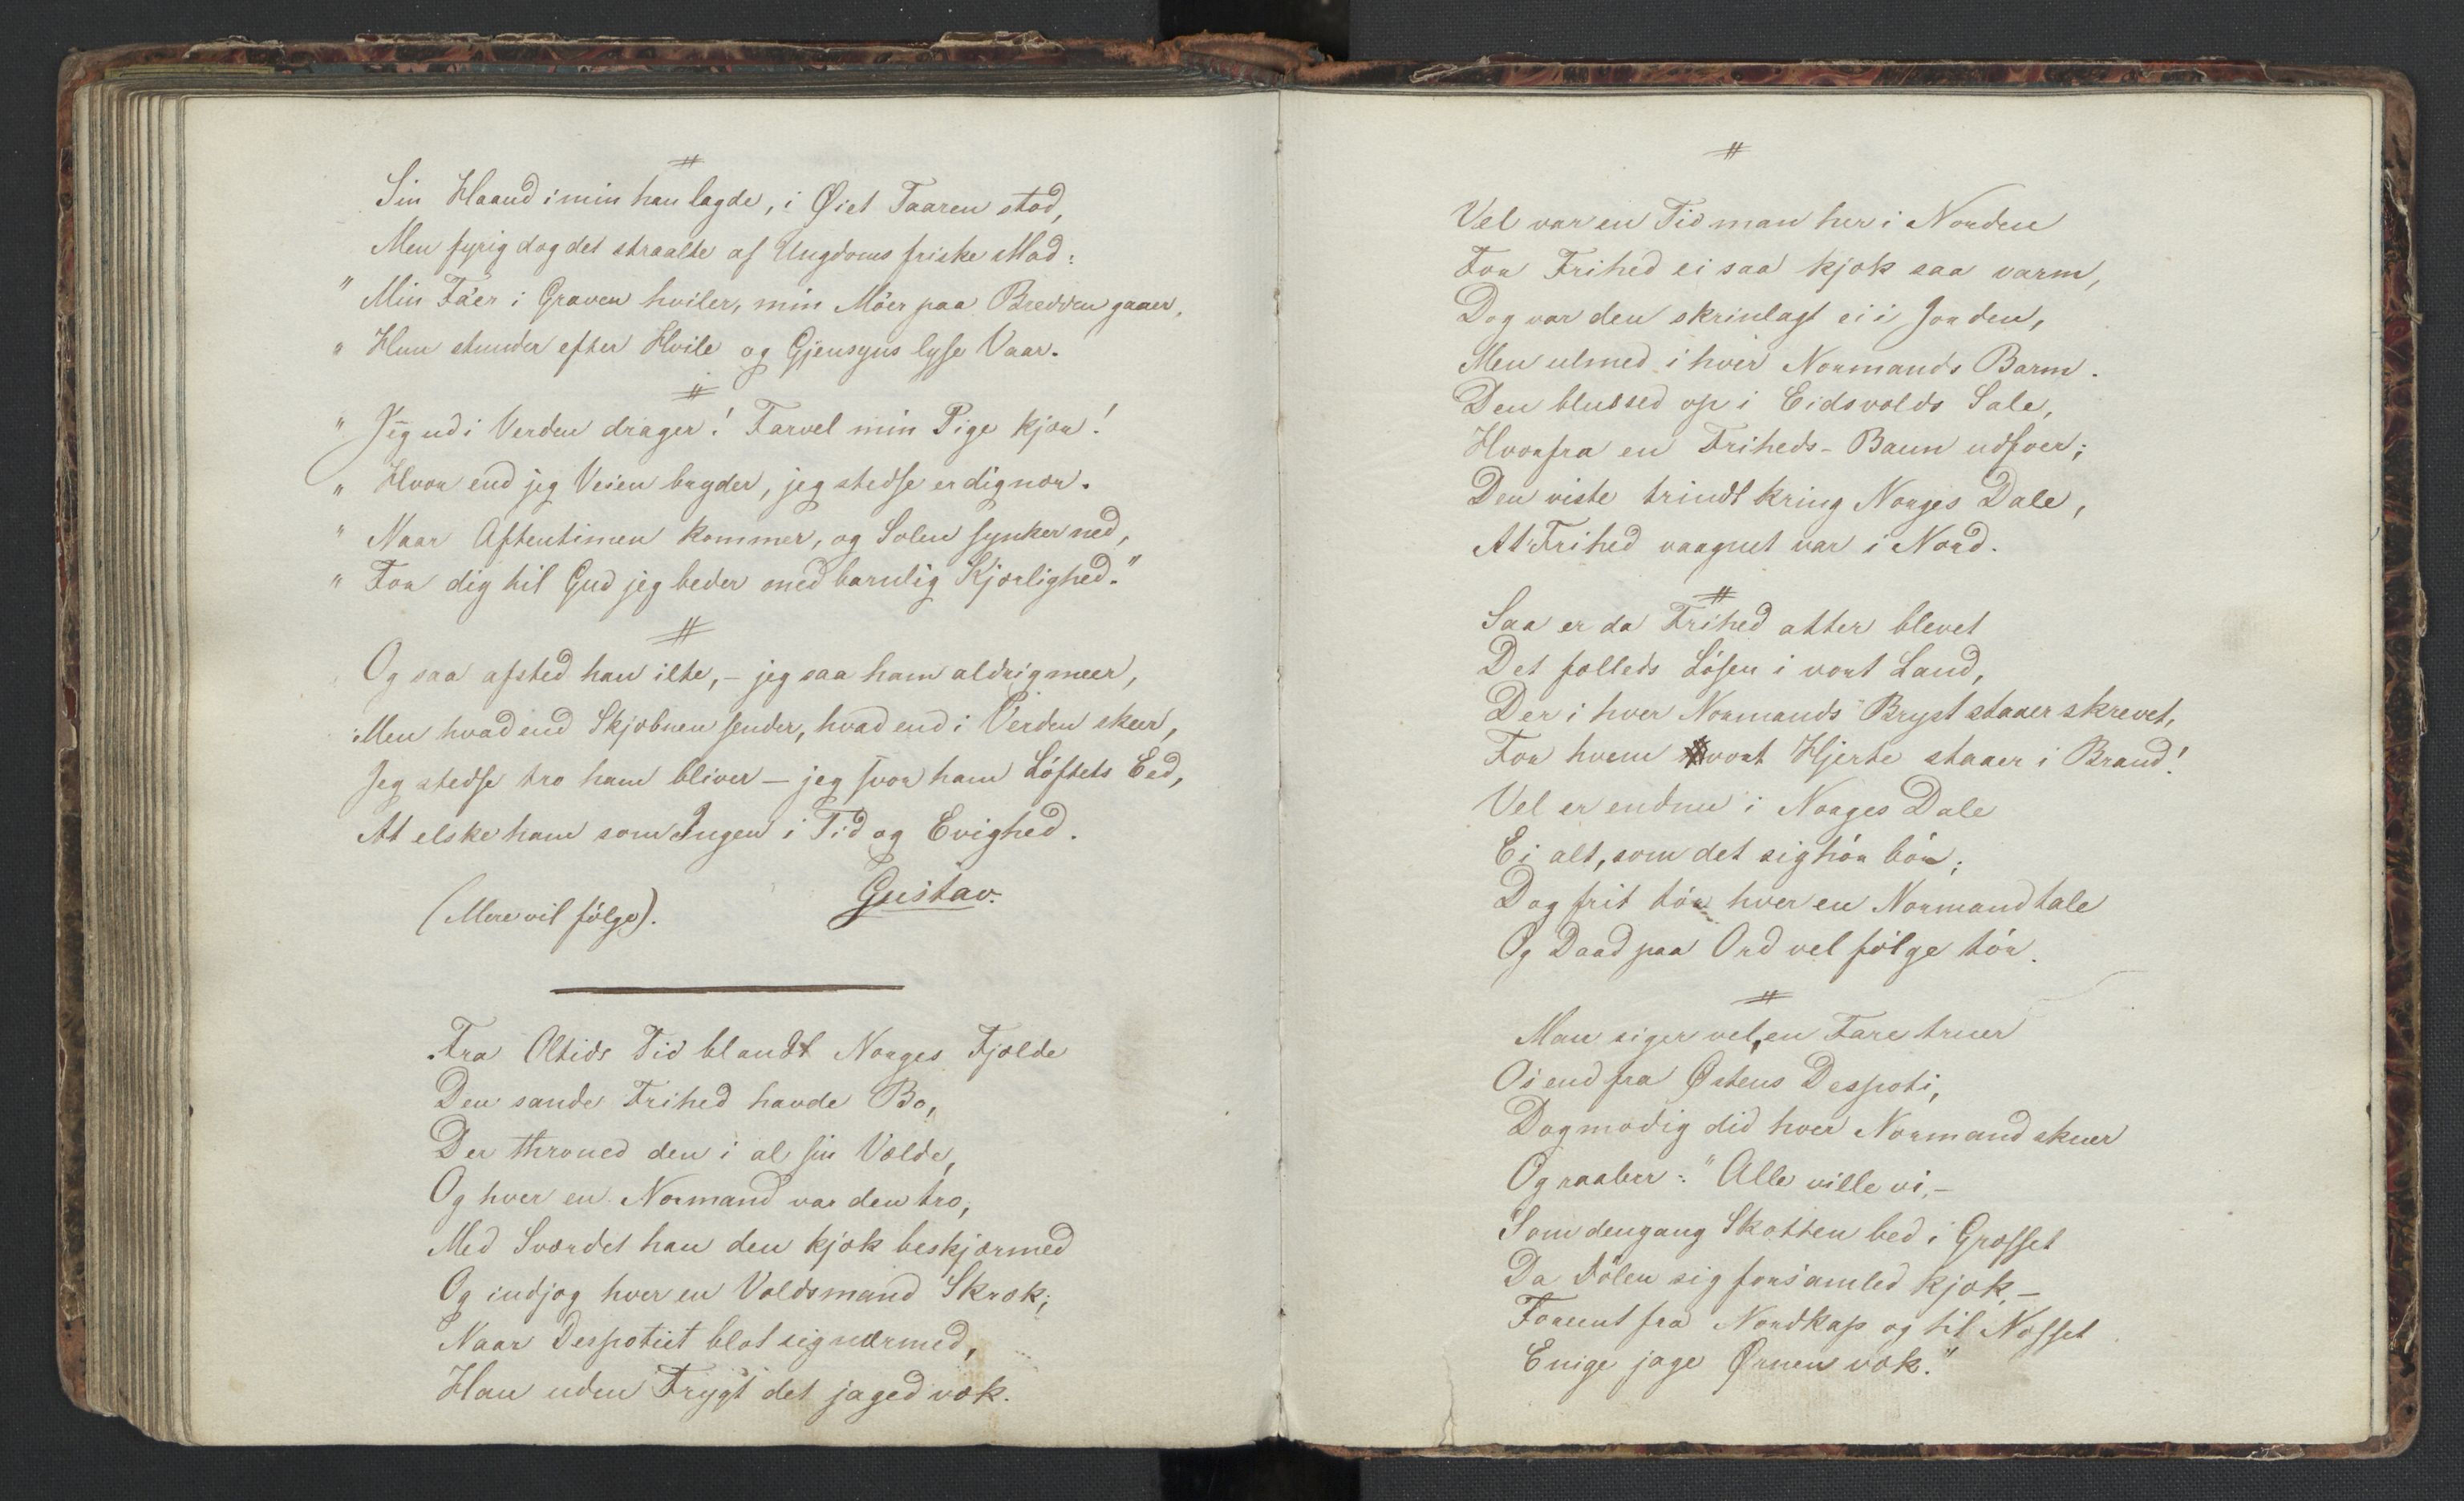 #
Sin Haand i min han lagde, i Øiet Taaren stod,
Men fyrig dog det straalte af Ungdoms friske Mod:
"Min Fa'er i Graven hviler, min Mo'er paa Bredden gaaer,
"Hun stunder efter Hvile og Gjensyns lyse Vaar.
#
"Jeg ud i Verden drager! Farvel min Pige kjær!
"Hvor end jeg Veien bryder, jeg stedse er dig nær.
"Naar Aftentimen kommer, og Solen synker ned,
"For dig til Gud jeg beder med barnlig Kjærlighed."
#
Og saa afsted han ilte, – jeg saa ham aldrig meer,
Men hvad end Skjæbnen sender, hvad end i Verden skeer,
Jeg stedse tro ham bliver – jeg svor ham Löftets Eed,
At elske ham som Ingen i Tid og Evighed.
Gustav.
(Mere vil fölge).
Fra Oltids Tid blandt Norges Fjælde
Den sande Frihed havde Bo,
Der throned den i al sin Vælde,
Og hver en Normand var den tro,
Med Sværdet han den kjæk beskjærmed
Og indjog hver en Voldsmand Skræk;
Naar Despotiet blot sig nærmed,
Han uden Frygt det jaged væk.
#
Vel var en Tid man her i Norden
For Frihed ei saa kjæk saa varm,
Dog var den skrinlagt ei i Jorden,
Men ulmed i hver Normands Barm.
Den blussed op i Eidsvolds Sale,
Hvorfra en Friheds-Baun udfoer;
Den viste trindt kring Norges Dale,
At Frihed vaagnet var i Nord.
#
Saa er da Frihed atter blevet
Det fælleds Lösen i vort Land,
Der i hver Normands Bryst staaer skrevet,
For hvem vort Hjerte staaer i Brand!
Vel er endnu i Norges Dale
Ei alt, som det sig hör bör;
Dog frit tör hver en Normand tale
Og Daad paa Ord vel fölge tör.
#
Man siger vel, en Fare truer
Os end fra Østens Despoti,
Dog modig did hver Normand skuer
Og raaber: "Alle ville vi, –
Som dengang Skotten bed i Græsset
Da Dölen sig forsamled kjæk –
Foreent fra Nordkap og til Næsset
Enige jage Ørnen væk."